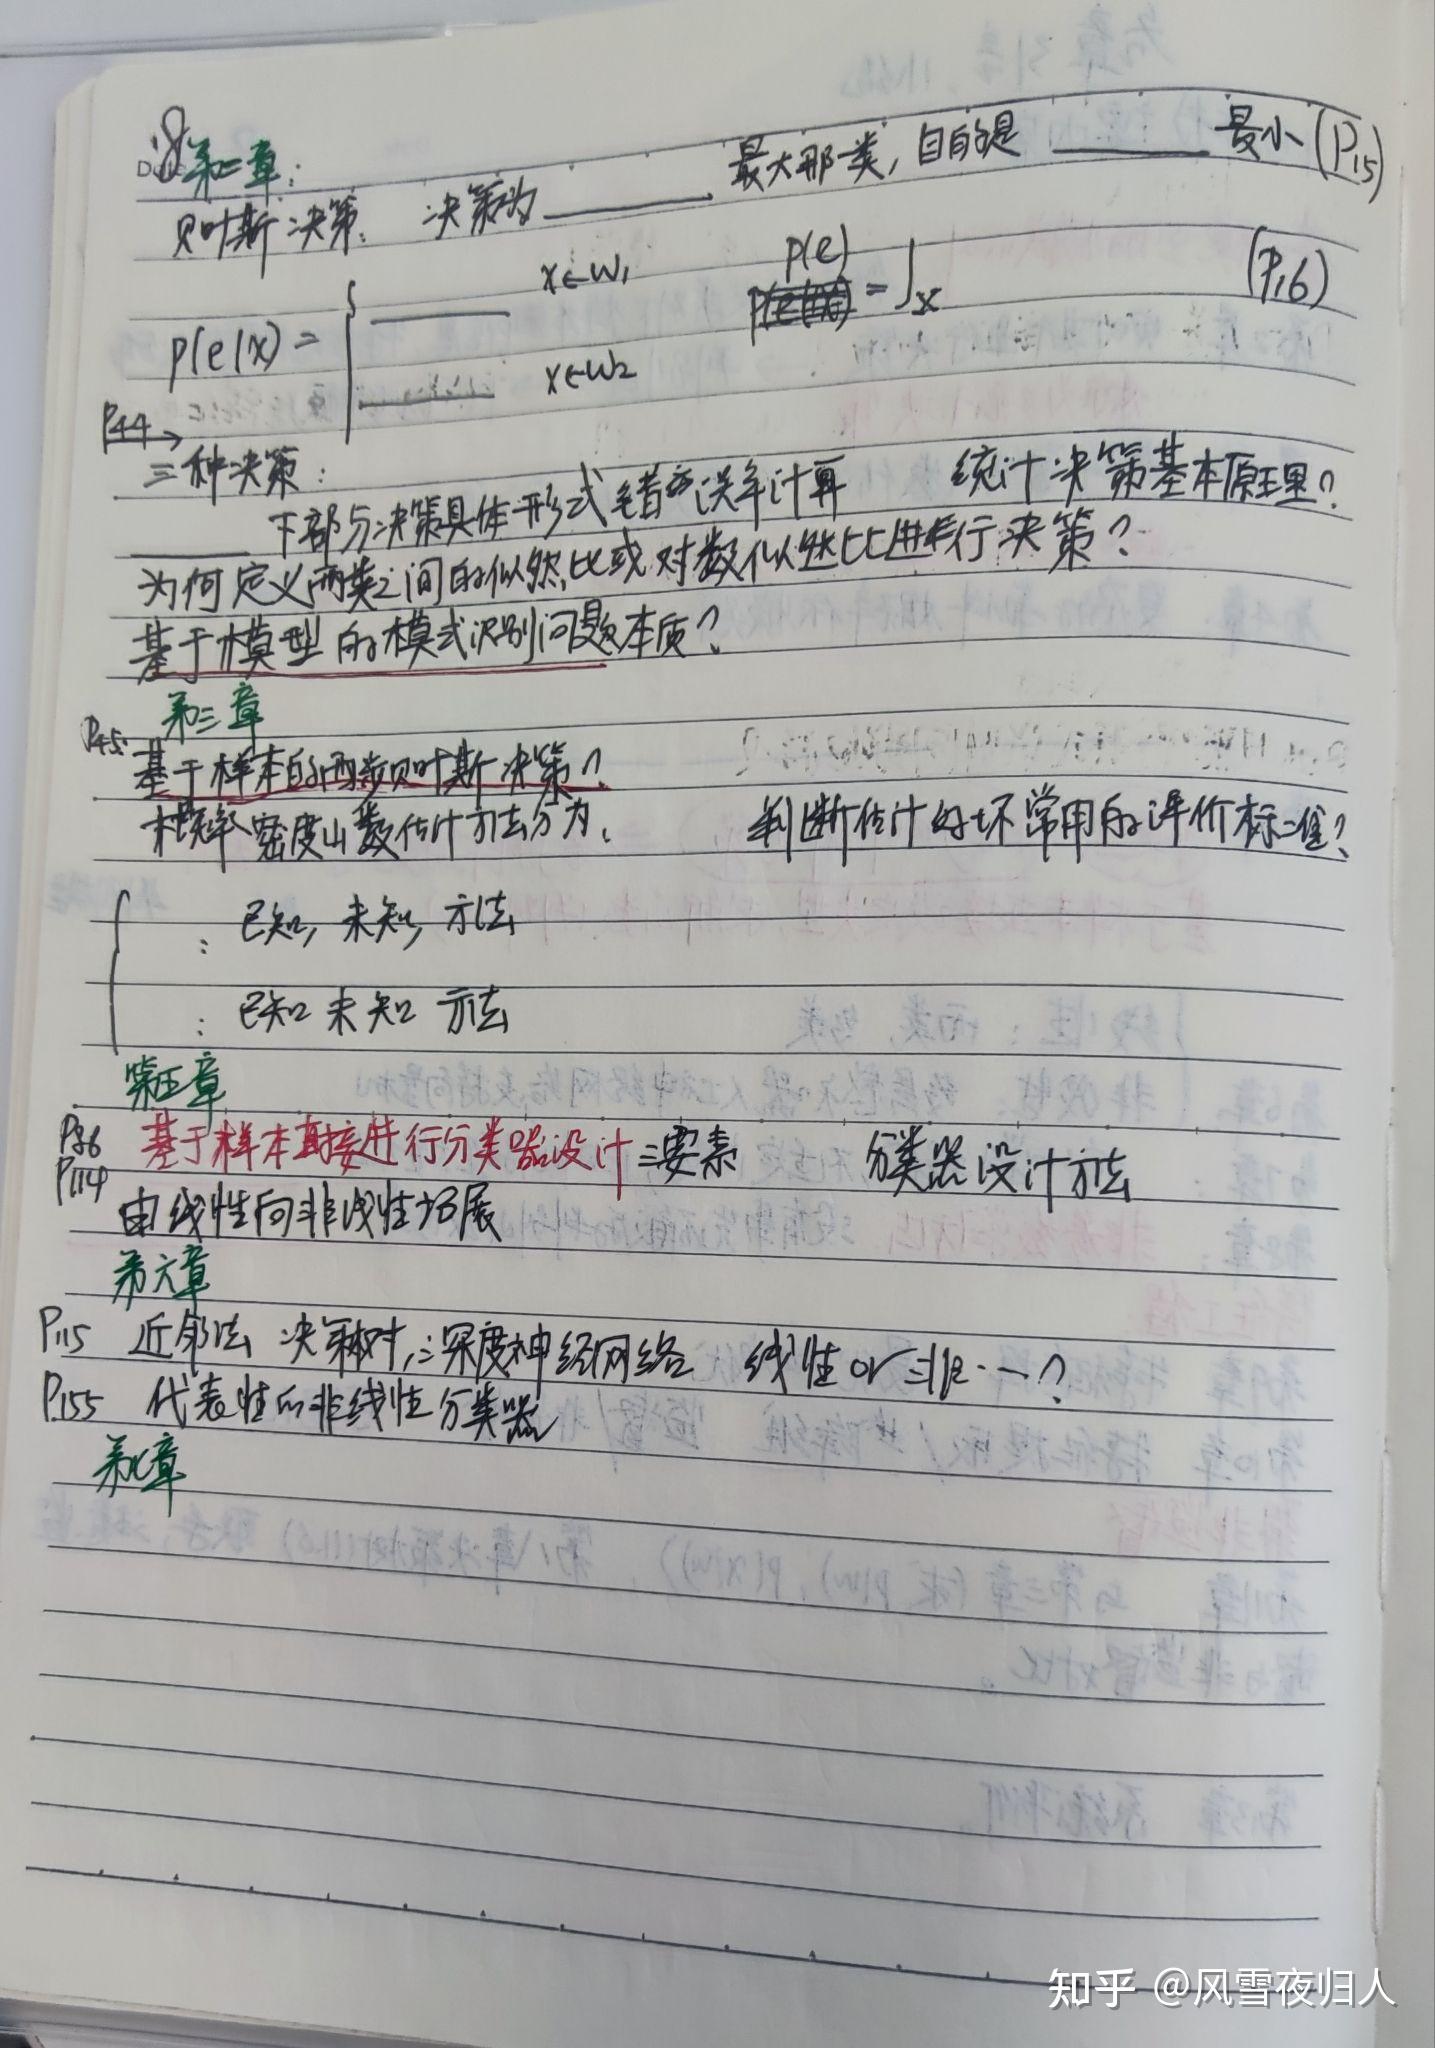 第二章:
贝叶斯决策: 决策为______最大那类,目的是______最小(P15)
p(e|x)= { ______ x∈w1
______ x∈w2
p(e) = ∫x (P16)
P44→
三种决策:
______下部分决策具体形式 错误率计算 统计决策基本原理?
为何定义两类之间的似然比或对数似然比进行决策?
基于模型的模式识别问题本质?
第三章
P45. 基于样本的两步贝叶斯决策?
概率密度函数估计方法分为: 判断估计好坏常用的评价标准?
: 已知, 未知, 方法
: 已知 未知 方法
第五章
P56 基于样本直接进行分类器设计三要素 分类器设计方法
P114 由线性向非线性拓展
第六章
P115 近邻法 决策树, 深度神经网络 线性or非…?
P155 代表性的非线性分类器
第七章
知乎 @风雪夜归人